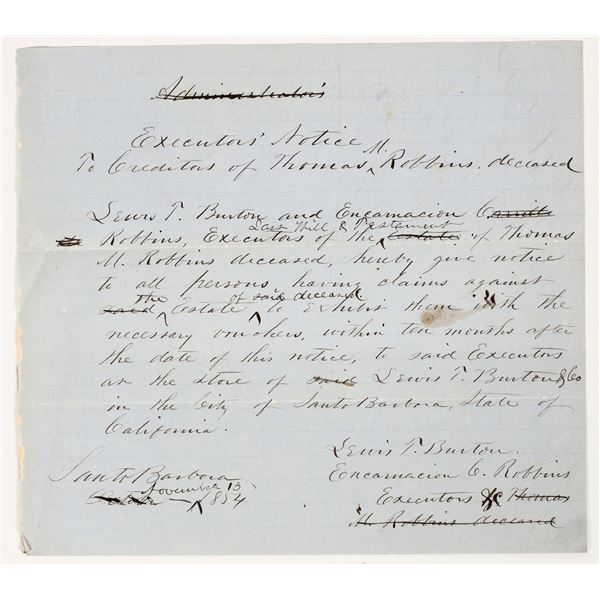 Administrator's
Executors' Notice
To Creditors of Thomas M. Robbins, deceased
Lewis T. Burton and Encarnacion Carrillo
Robbins, Executors of the Last Will & Testament estate of Thomas
M. Robbins deceased, hereby give notice
to all persons having claims against
said the Estate of said deceased to exhibit them with the
necessary vouchers, within ten months after
the date of this notice, to said Executors
at the store of said Lewis T. Burton & Co
in the City of Santa Barbara, State of
California.
Lewis T. Burton.
Encarnacion C. Robbins
Executors of Thomas
M. Robbins deceased
Santa Barbara
October November 13 1854